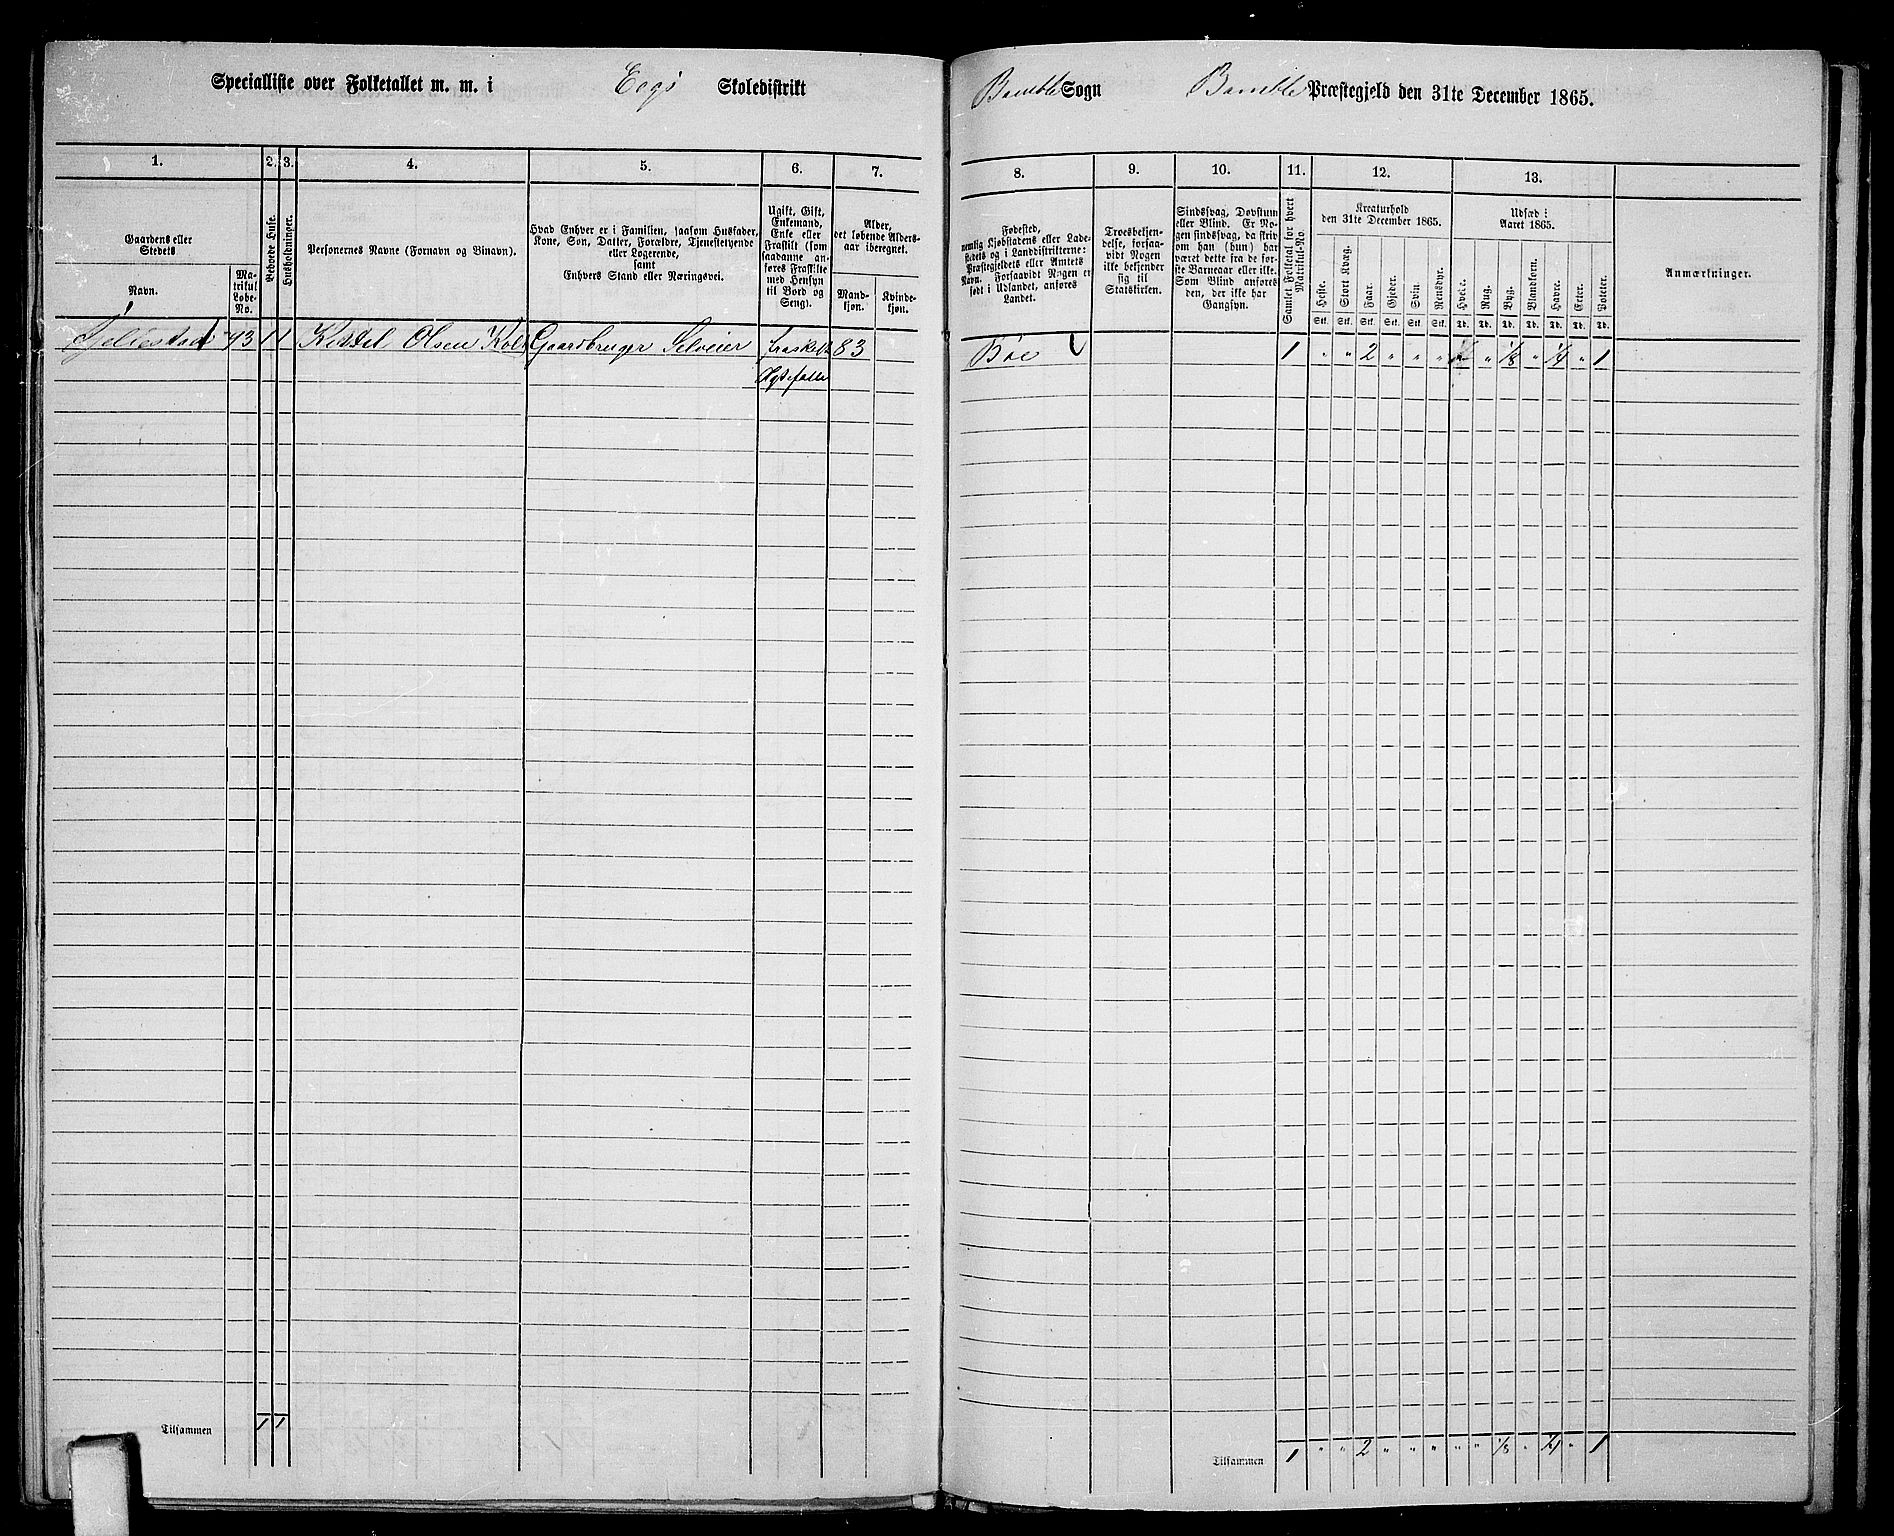 Specialliste over Folketallet m. m. i Eegs Skoledistrikt
Bamble Sogn Bamble Præstegjeld den 31te December 1865.
1. 2. 3. 4. 5. 6. 7.
Gaardens eller
Stedets
Navn.
Ma-
trikul
Løbe-
No.
Beboede Huse.
Husholdninger.
Personernes Navne (Fornavn og Binavn).
Hvad Enhver er i Familien, saasom Husfader,
Kone, Søn, Datter, Forældre, Tjenestetyende
eller Logerende,
samt
Enhvers Stand eller Næringsvei.
Ugift, Gift,
Enkemand,
Enke eller
Fraskilt (som
saadanne an-
føres Fraskilte
med Hensyn
til Bord og
Seng).
Alder,
det løbende Alders-
aar iberegnet.
Mand-
kjøn.
Kvinde-
kjøn.
93 1 1 Kittel Olsen Gaardbruger Selveier fraskilt 83
Ægtefælle
Tilsammen 1 1
8. 9. 10. 11. 12. 13.
Fødested,
nemlig Kjøbstadens eller Lade-
stedets og i Landdistrikterne:
Præstegjeldets eller Amtets
Navn. Forsaavidt Nogen er
født i Udlandet, anføres
Landet.
Troesbekjen-
delse, forsaa-
vidt Nogen
ikke bekjender
sig til
Statskirken.
Sindssvag, Døvstum
eller Blind. Er No-
gen sindssvag, da skriv
om han (hun) har
været dette fra de før-
ste Barneaar eller ikke.
Som Blind anføres
den, der ikke har
Gangsyn.
Samlet Folketal for hvert
Matrikul-No.
Kreaturhold
den 31te December 1865.
Heste. Stort Kvæg. Faar. Gjeder. Svin. Rensdyr.
Stk. Stk. Stk. Stk. Stk. Stk.
Udsæd i
Aaret 1865.
Hvede. Rug. Byg. Blandkorn. Havre. Erter. Poteter.
Td. Td. Td. Td. Td. Td. Td.
Anmærkninger.
Böe 1 " " 2 " " " " 1/8 " 1/4 " 1
Tilsammen 1 " " 2 " " " " " 1/8 " 1/4 " 1